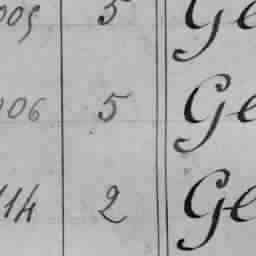 005 5 Ge
006 5 Ge
114 2 Ge